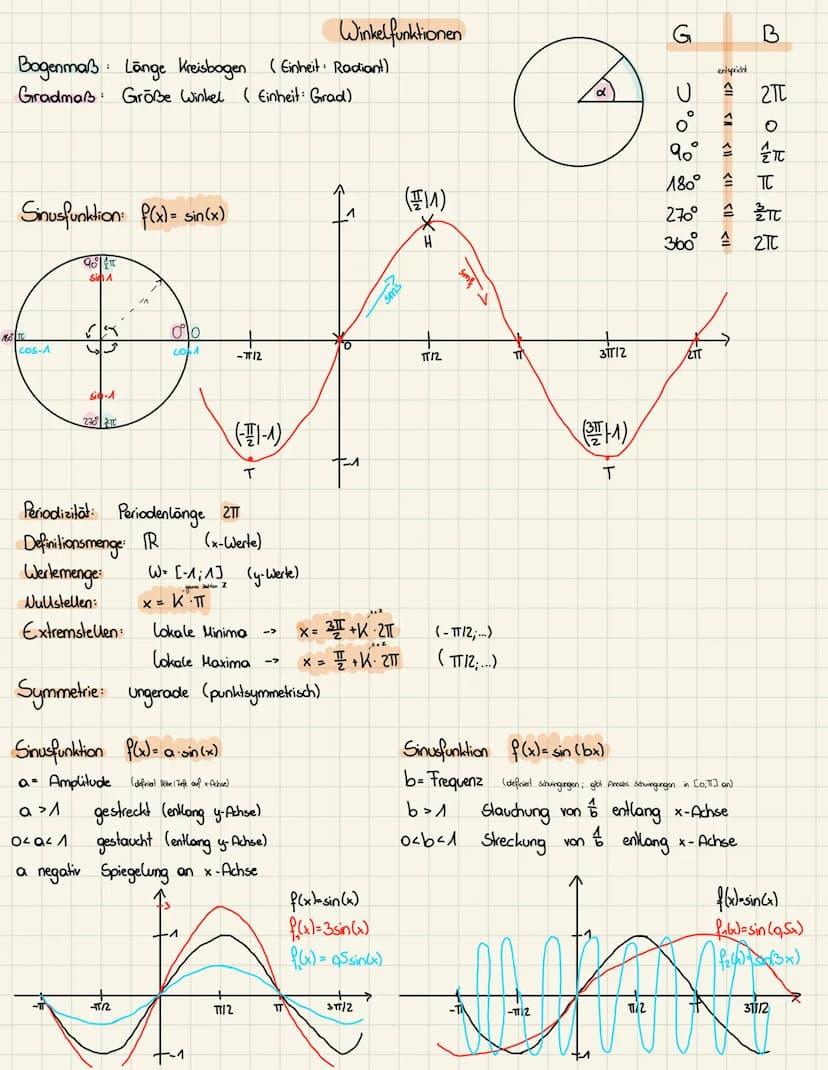 Winkelfunktionen
Bogenmaß: Länge Kreisbogen (Einheit: Radiant)
Gradmaß: Größe Winkel (Einheit: Grad)
α
G B
entspricht
U ≙ 2π
0° ≙ 0
90° ≙ 1/2 π
180° ≙ π
270° ≙ 3/2 π
360° ≙ 2π
Sinusfunktion: f(x) = sin(x)
90° 1/2 π
sin 1
180° π
cos -1
0° 0
cos 1
sin -1
270° 3/2 π
1
(π/2|1)
H
sms
smf
-π/2
0
π/2
π
3π/2
2π
(-π/2|-1)
T
-1
(3π/2|-1)
T
Periodizität: Periodenlänge 2π
Definitionsmenge: ℝ (x-Werte)
Wertemenge: W = [-1;1] (y-Werte)
Nullstellen: x = K · π
Extremstellen: lokale Minima --> x = 3π/2 + K · 2π (-π/2;...)
lokale Maxima --> x = π/2 + K · 2π (π/2;...)
Symmetrie: ungerade (punktsymmetrisch)
Sinusfunktion f(x) = a · sin(x)
a = Amplitude
a > 1 gestreckt (entlang y-Achse)
0 < a < 1 gestaucht (entlang y-Achse)
a negativ Spiegelung an x-Achse
f(x) = sin(x)
f₁(x) = 3sin(x)
f₂(x) = 0,5sin(x)
3
1
-π
-π/2
π/2
π
3π/2
-1
Sinusfunktion f(x) = sin(bx)
b = Frequenz (definiert Schwingungen; gibt Anzahl Schwingungen in [0;π] an)
b > 1 Stauchung von 1/b entlang x-Achse
0 < b < 1 Streckung von 1/b entlang x-Achse
f(x) = sin(x)
f₁(x) = sin(0,5x)
f₂(x) = sin(3x)
1
-π
-π/2
π/2
π
3π/2
-1